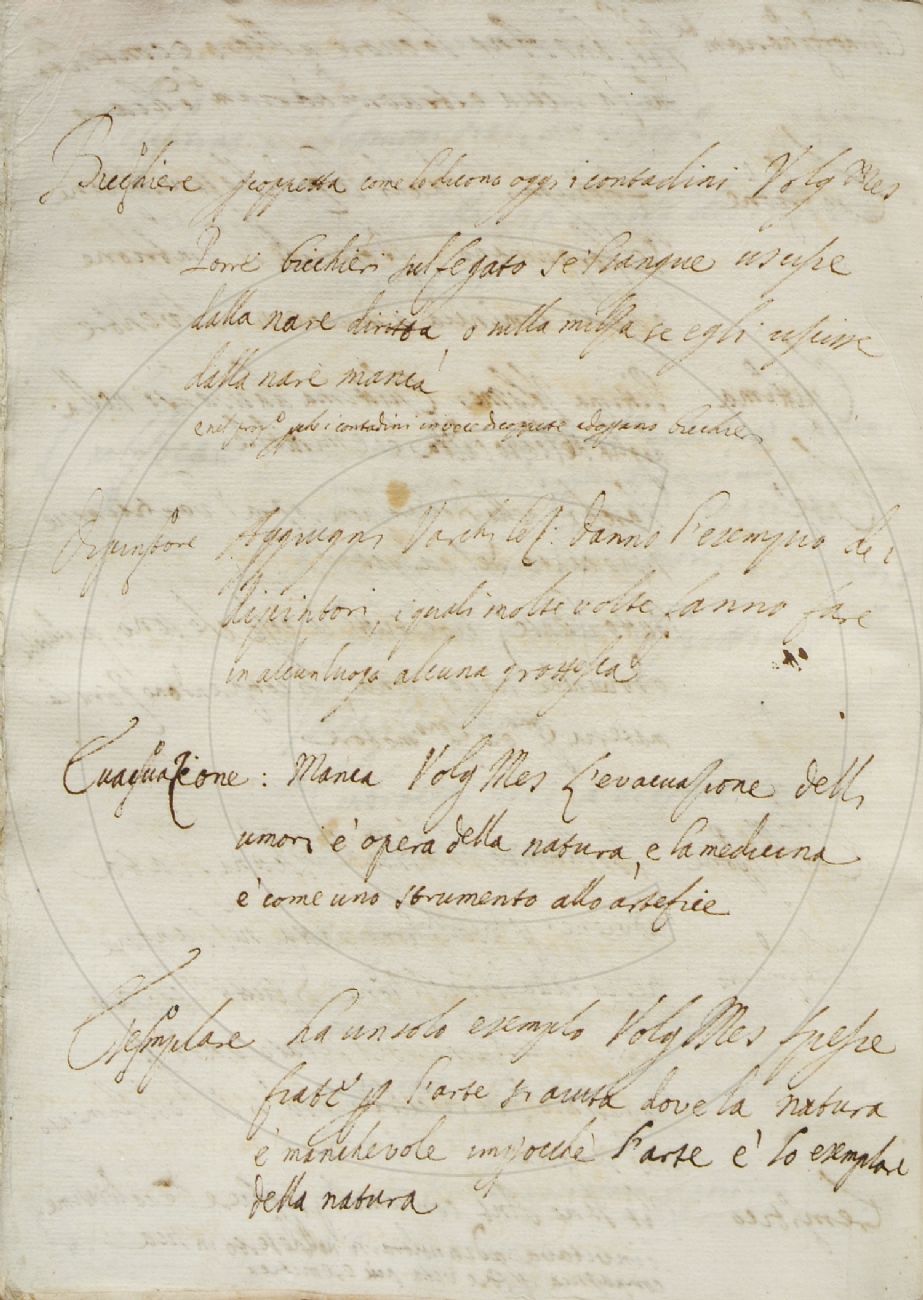 Bicchiere coppetta come lo dicono oggi i contadini Volg Mes
Porre bicchieri sul fegato se 'l sangue uscisse
dalla nare diritta o nulla milza se egli uscisse
dalla nare manca
i contadini invece di coppette adoprano bicchieri
Dipintore Aggiugni Varchi Lez: danno l'esempio de i
dipintori, i quali molte volte fanno fare
in alcun luogo alcuna grottesca
Evacuazione: Manca Volg Mes L'evacuazione delli
umori è opera della natura, e la medicina
è come uno strumento allo artefice
Esemplare ha un solo esemplo Volg Mes Spesse
fiate l'arte s'aiuta dove la natura
è manchevole imp̃occhè l'arte è lo exemplare
della natura